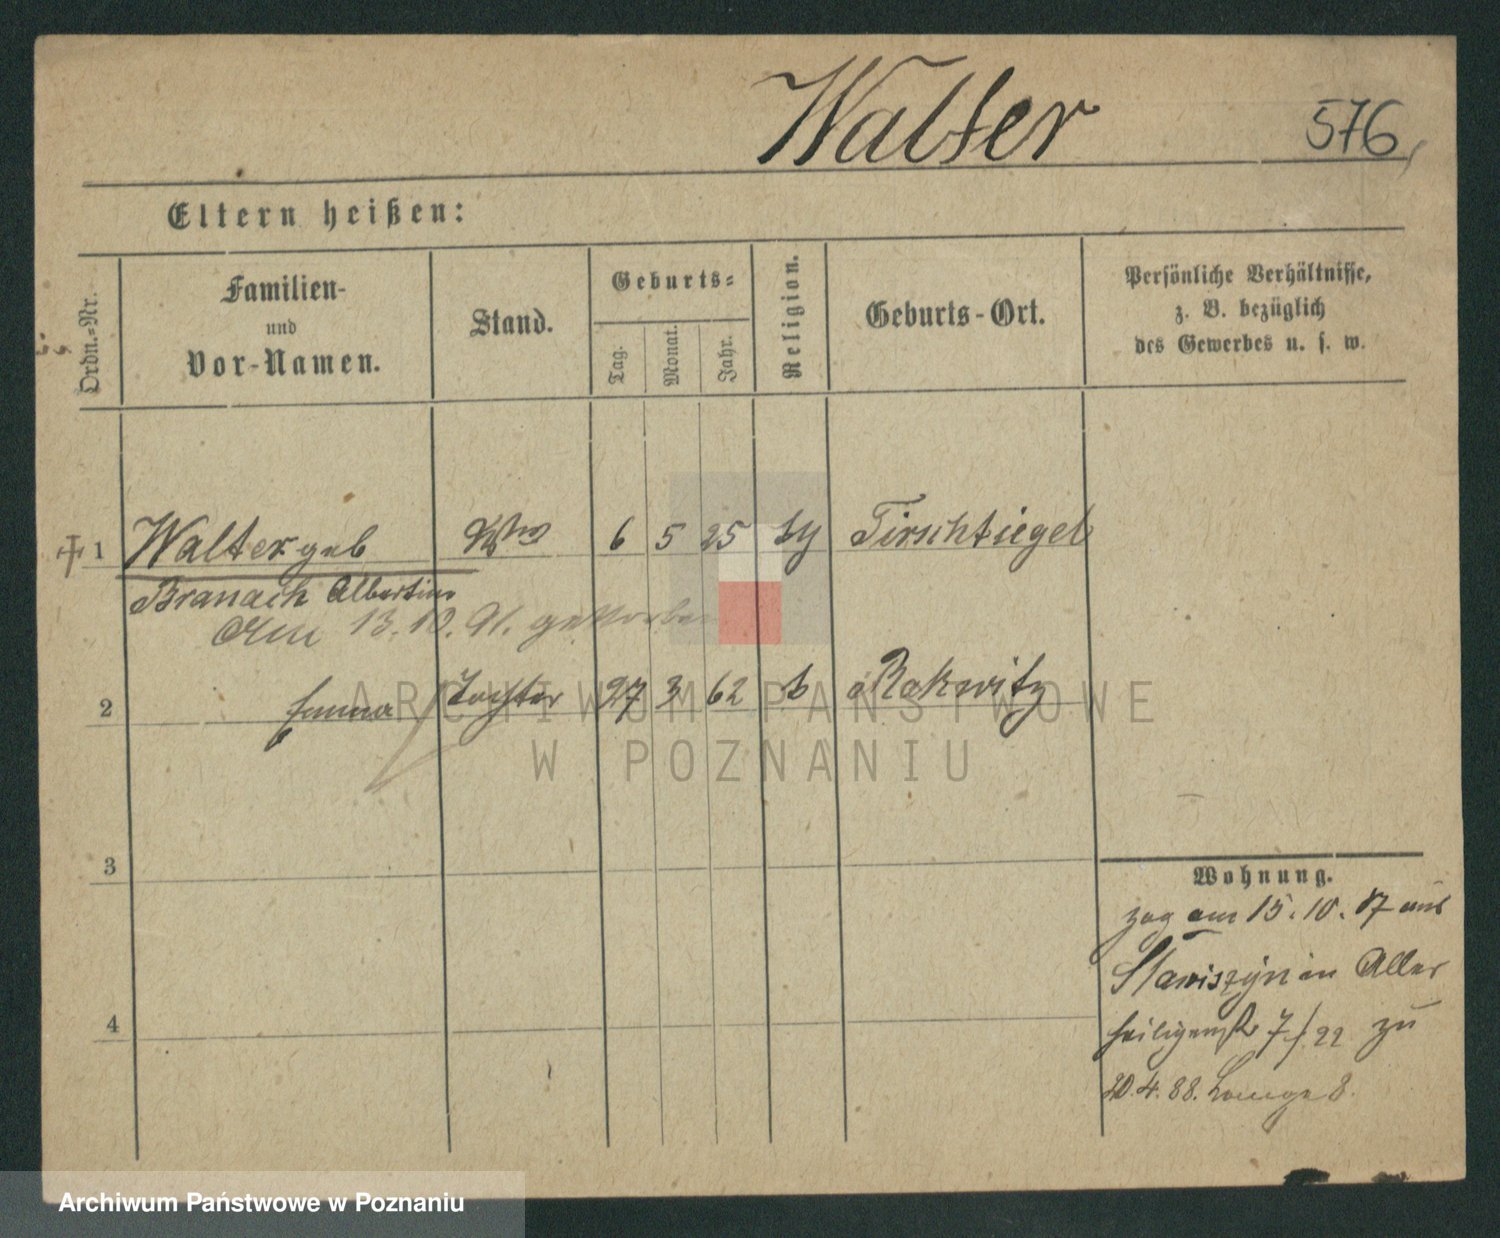 Walter 576
Eltern heißen:
Ordn.-Nr.
Familien-
und
Vor-Namen.
Stand.
Geburts-
Tag.
Monat.
Jahr.
Religion.
Geburts-Ort.
Persönliche Verhältnisse,
z. B. bezüglich
des Gewerbes u. s. w.
1 Walter geb Wwe 6 5 25 Tirschtiegel
Branach Albertine
Am 13.10.91. gestorben
2 Emma Tochter 27 3 62 Rakwitz
3
4
Wohnung.
zog am 15.10.87 aus
Stawiszyn in Aller
heiligenstr 7/22 zu
20.4.88. Lange 8.
ARCHIWUM PAŃSTWOWE
W POZNANIU
Archiwum Państwowe w Poznaniu